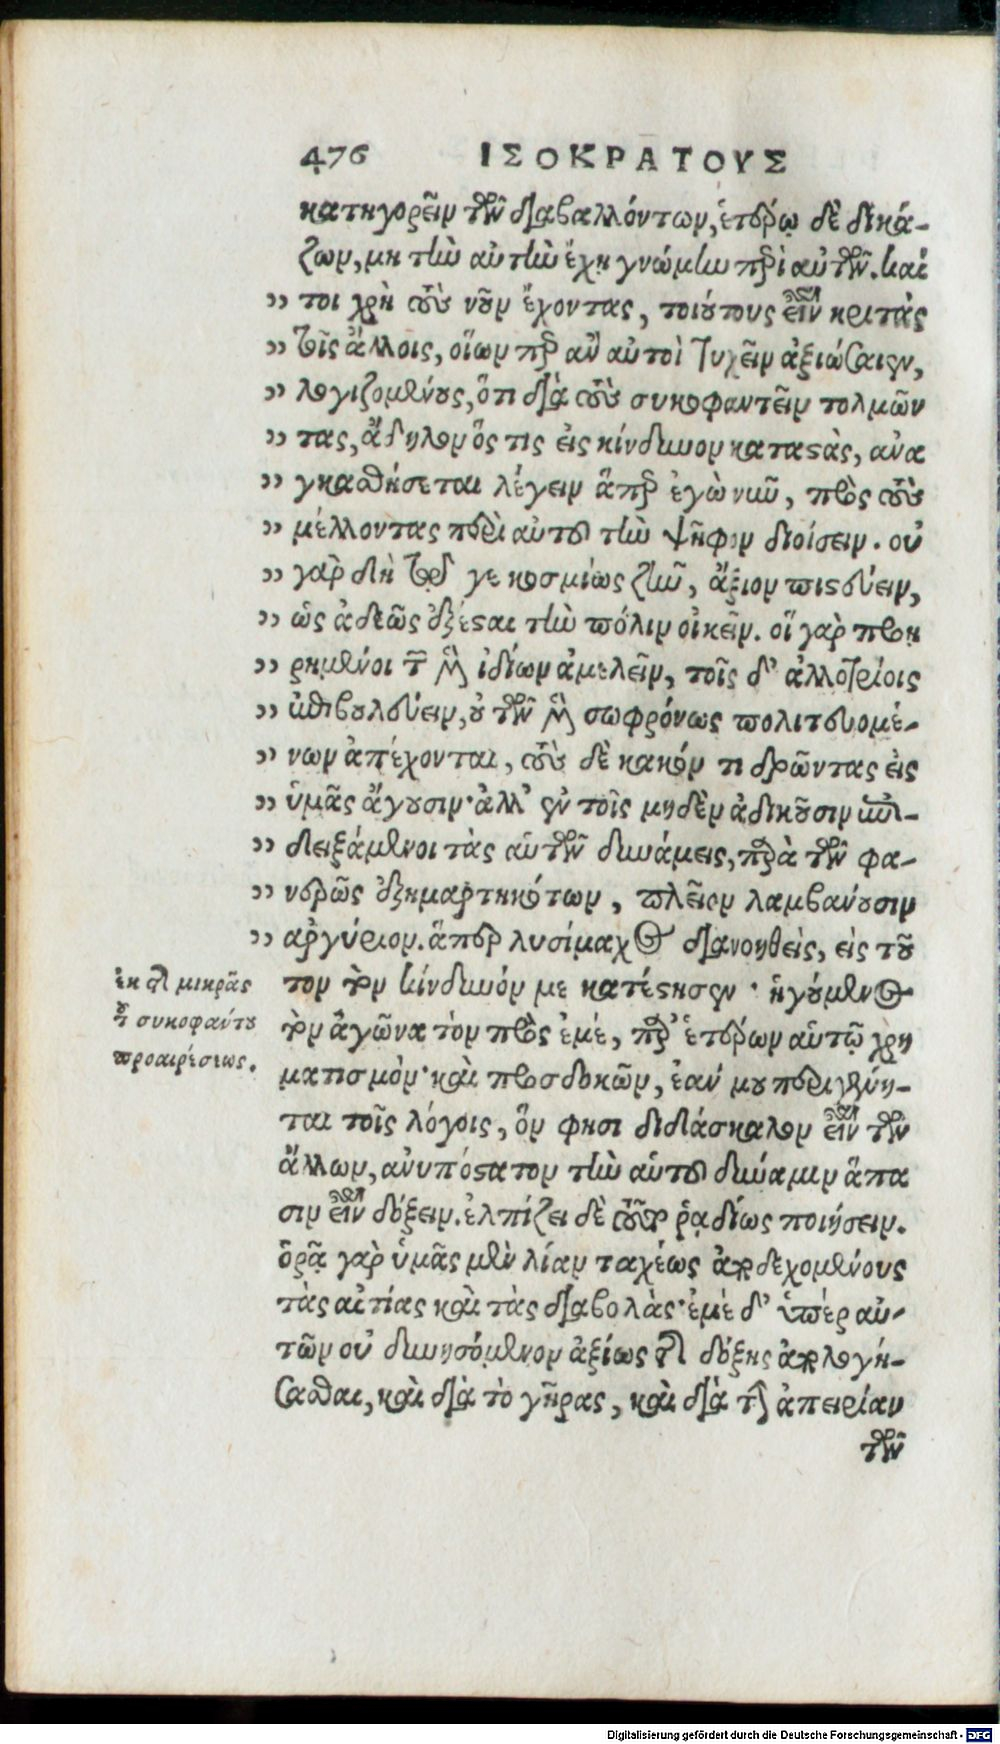 476 ΙΣΟΚΡΑΤΟΥΣ
κατηγορεῖν τῶν διαβαλλόντων, ἑτέρῳ δὲ δικά-
ζων, μὴ τὴν αὐτὴν ἔχῃ γνώμην περὶ αὐτῶν. καί
” τοι χρὴ τοὺς νοῦν ἔχοντας, τοιούτους εἶναι κριτὰς
” τοῖς ἄλλοις, οἵων περ ἂν αὐτοὶ τυχεῖν ἀξιώσαιεν,
” λογιζομένους, ὅτι διὰ τοὺς συκοφαντεῖν τολμῶν
” τας, ἄδηλον ὅς τις εἰς κίνδυνον καταστὰς, ἀνα
” γκασθήσεται λέγειν ἅπερ ἐγὼ νῦν, πρὸς τοὺς
” μέλλοντας περὶ αὐτοῦ τὴν ψῆφον διοίσειν. οὐ
” γὰρ δὴ τῷ γε κοσμίως ζῆν, ἄξιον πιστεύειν,
” ὡς ἀδεῶς ἐξέσται τὴν πόλιν οἰκεῖν. οἱ γὰρ προῃ
” ρημένοι τῶν μὲν ἰδίων ἀμελεῖν, τοῖς δ’ ἀλλοτρίοις
” ἐπιβουλεύειν, οὐ τῶν μὲν σωφρόνως πολιτευομέ-
” νων ἀπέχονται, τοὺς δὲ κακόν τι δρῶντας εἰς
” ὑμᾶς ἄγουσιν· ἀλλ’ ἐν τοῖς μηδὲν ἀδικοῦσιν ἐπι-
” δειξάμενοι τὰς αὑτῶν δυνάμεις, παρὰ τῶν φα-
” νερῶς ἐξημαρτηκότων, πλεῖον λαμβάνουσιν
” ἀργύριον. ἅπερ λυσίμαχος διανοηθεὶς, εἰς τοῦ
τον τὸν κίνδυνόν με κατέστησεν· ἡγούμενος
τὸν ἀγῶνα τὸν πρὸς ἐμέ, παρ’ ἑτέρων αὑτῷ χρη
ματισμόν· καὶ προσδοκῶν, ἐάν μου περιγένη-
ται τοῖς λόγοις, ὅν φησι διδάσκαλον εἶναι τῶν
ἄλλων, ἀνυπόστατον τὴν αὑτοῦ δύναμιν ἅπα
σιν εἶναι δόξειν. ἐλπίζει δὲ τοῦτο ῥᾳδίως ποιήσειν.
ὁρᾷ γὰρ ὑμᾶς μὲν λίαν ταχέως ἀποδεχομένους
τὰς αἰτίας καὶ τὰς διαβολὰς· ἐμὲ δ’ ὑπὲρ αὐ-
τῶν οὐ δυνησόμενον ἀξίως τῆς δόξης ἀπολογή-
σασθαι, καὶ διὰ τὸ γῆρας, καὶ διὰ τὴν ἀπειρίαν
τῶν
ἐκ τῆς μικρᾶς
τοῦ συκοφάντου
προαιρέσεως.
Digitalisierung gefördert durch die Deutsche Forschungsgemeinschaft - DFG